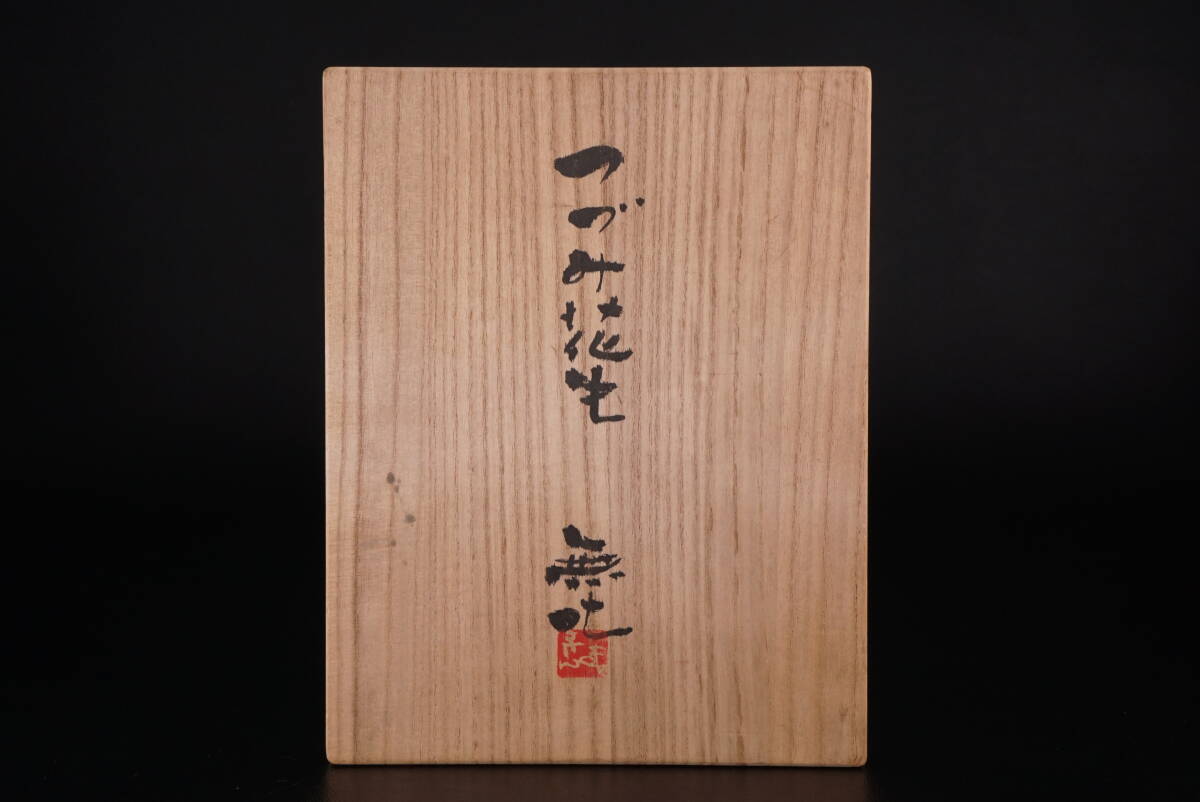 つづみ花生
無吡